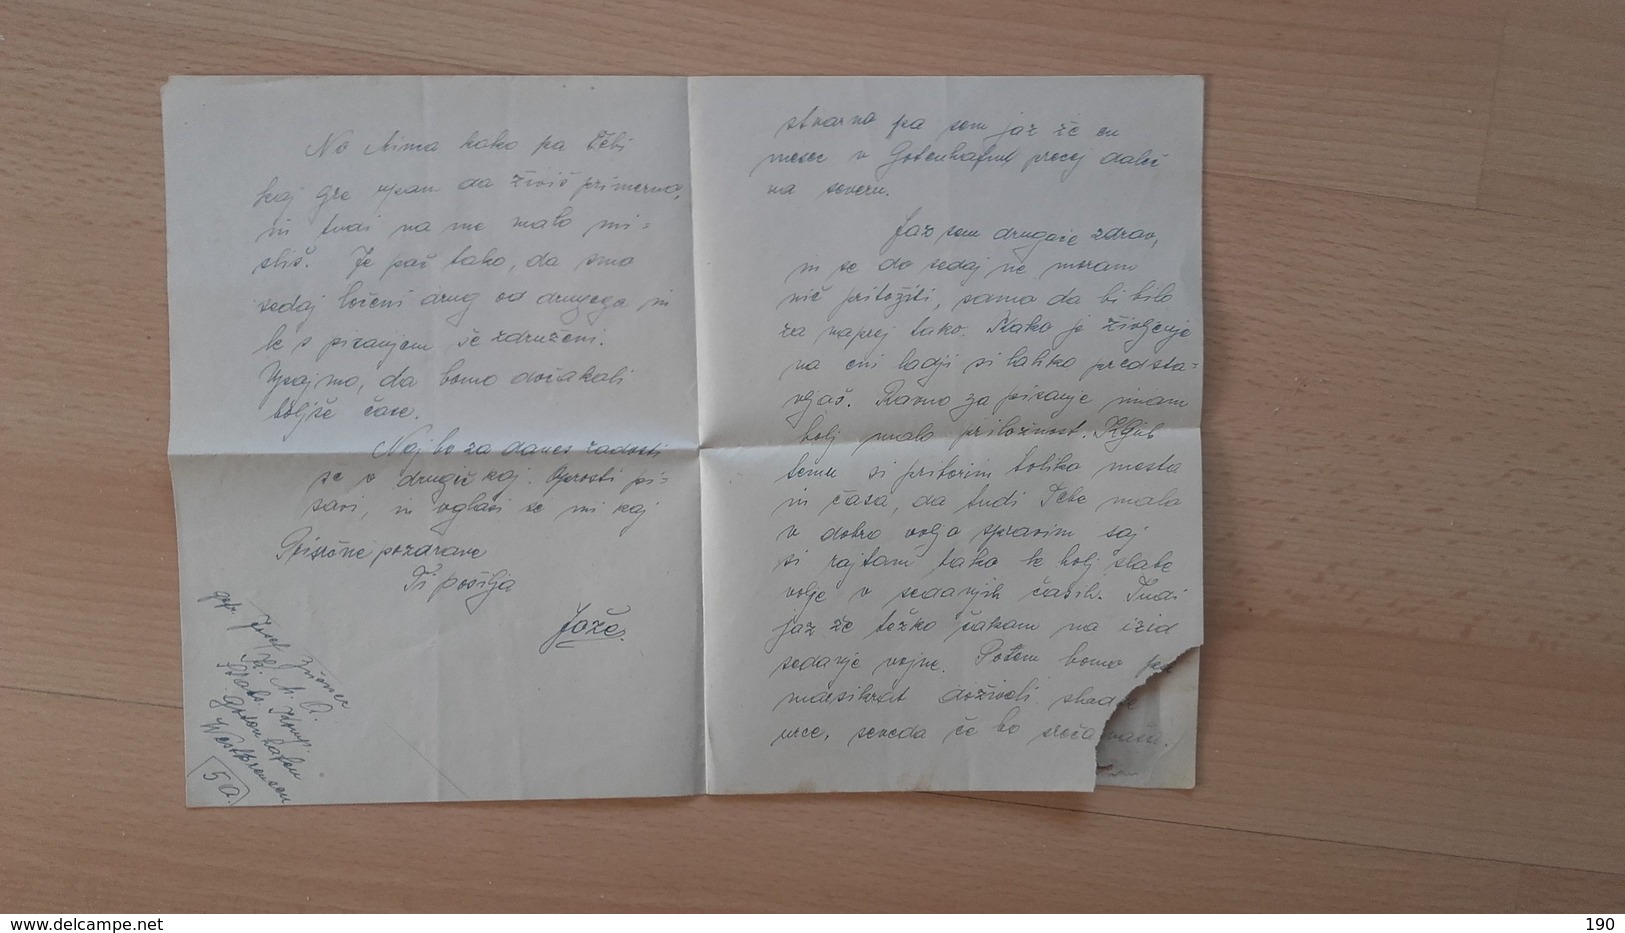 No Mima kako pa Tebi
kaj gre upam da živiš primerno,
in tudi na me malo mi=
sliš. Je pač tako, da smo
sedaj ločeni drug od drugega in
le s pisanjem še združeni.
Upajmo, da bomo dočakali
boljše čase.
Naj bo za danes zadosti
se v drugič kaj. Oprosti pi=
savi, in oglasi se mi kaj
Prisrčne pozdrave
Ti pošilja
Jože.
Josef
Gotenhafen
Westpreussen
5a.
stvarno pa sem jaz že en
mesec v Gotenhafnu precej daleč
na severu.
Jaz sem drugače zdrav,
in se do sedaj ne moram
nič pritožiti, samo da bi bilo
za naprej tako. Kako je življenje
na eni ladji si lahko predsta-
vljaš. Ravno za pisanje imam
bolj malo priložnost. Kljub
temu si pritorim toliko mesta
in časa, da tudi Tebe malo
v dobro voljo spravim saj
si rajtam tako le bolj slabe
volje v sedanjih časih. Tudi
jaz že težko čakam na izid
sedanje vojne. Potem bomo pa
marsikrat doživeli sladke
urce, seveda če bo sreča naša.